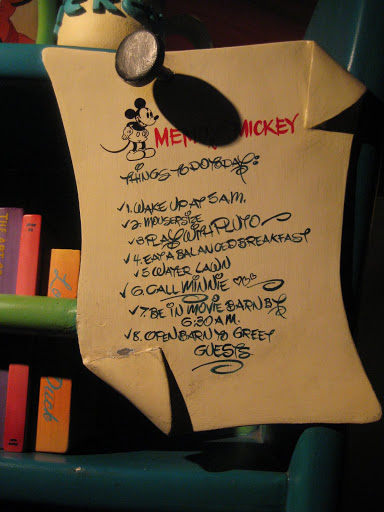 MEMO MICKEY
THINGS TO DO TODAY:
✓1. WAKE UP AT 5 A.M.
✓2. MOUSERSIZE
✓3 PLAY WITH PLUTO
✓4. EAT A BALANCED BREAKFAST
✓5 WATER LAWN
✓6. CALL MINNIE
✓7. BE IN MOVIE BARN BY
6:30 A.M.
✓8. OPEN BARN TO GREET
GUESTS
THE ART OF